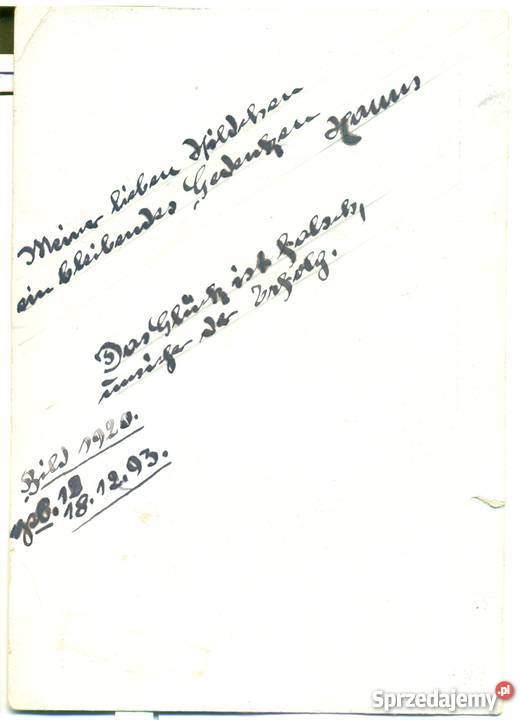 Meiner lieben Hildchen
ein bleibendes Gedenken Hanns
Das Glück ist falsch,
unsicher der Erfolg.
Bild 1920.
geb. 12
18.12.93.
Sprzedajemy.pl